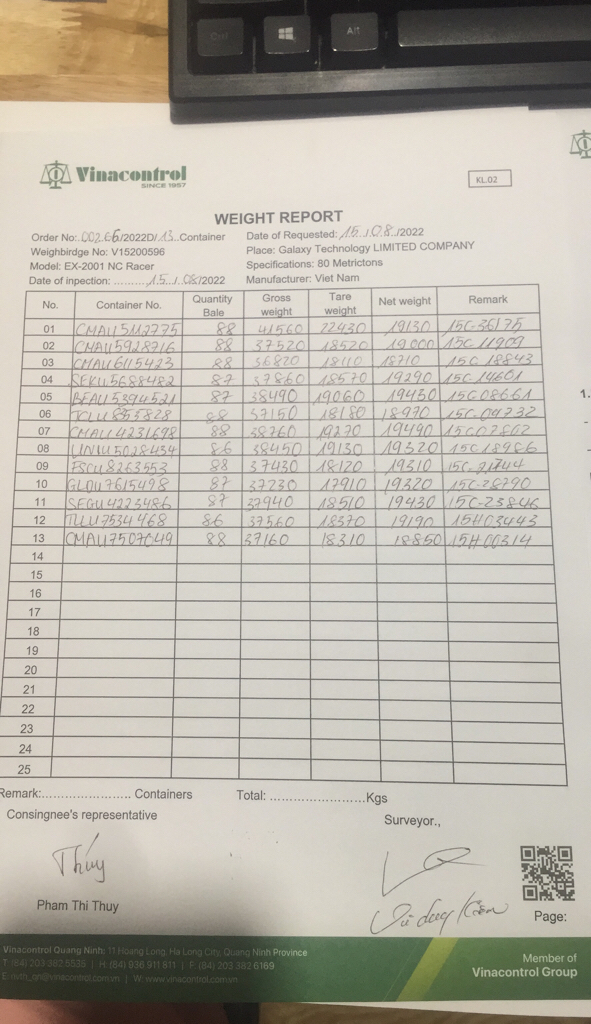 Ctrl
Alt
Vinacontrol
SINCE 1957
KL.02
WEIGHT REPORT
Order No: 00266/2022D/ 13 Container
Date of Requested: 15/08/2022
Weighbirdge No: V15200596
Place: Galaxy Technology LIMITED COMPANY
Model: EX-2001 NC Racer
Specifications: 80 Metrictons
Date of inpection: ......... 15/08/2022
Manufacturer: Viet Nam
No. Container No. Quantity Bale Gross weight Tare weight Net weight Remark
01 CMAU5112775 88 41560 22430 19130 15C-36175
02 CMAU5928716 88 37520 18520 19000 15C 11909
03 CMAU6115423 88 36820 18110 18710 15C 18843
04 SEKU5688482 87 37860 18570 19290 15C 14601
05 BEAU5394521 87 38490 19060 19430 15C08661
06 TCLU855828 88 37150 18180 18970 15C-04732
07 CMAU4231698 88 38760 19270 19490 15C02862
08 UNIU5028434 86 38450 19130 19320 15C18986
09 FSCU8263553 88 37430 18120 19310 15C-21744
10 GLDU7615498 87 37230 17910 19320 15C-28790
11 SEGU4223486 87 37940 18510 19430 15C-23846
12 TLLU7534468 86 37560 18370 19190 15H03443
13 CMAU7507049 88 37160 18310 18850 15H00314
14
15
16
17
18
19
20
21
22
23
24
25
Remark:..................... Containers Total: .......................Kgs
Consingnee's representative
Surveyor.,
Thúy
Pham Thi Thuy
Page:
Vinacontrol Quang Ninh: 11 Hoang Long, Ha Long City, Quang Ninh Province
T: (84) 203 382 6535 | H: (84) 936 911 811 | F: (84) 203 382 6169
W: www.vinacontrol.com.vn
Member of
Vinacontrol Group
1.